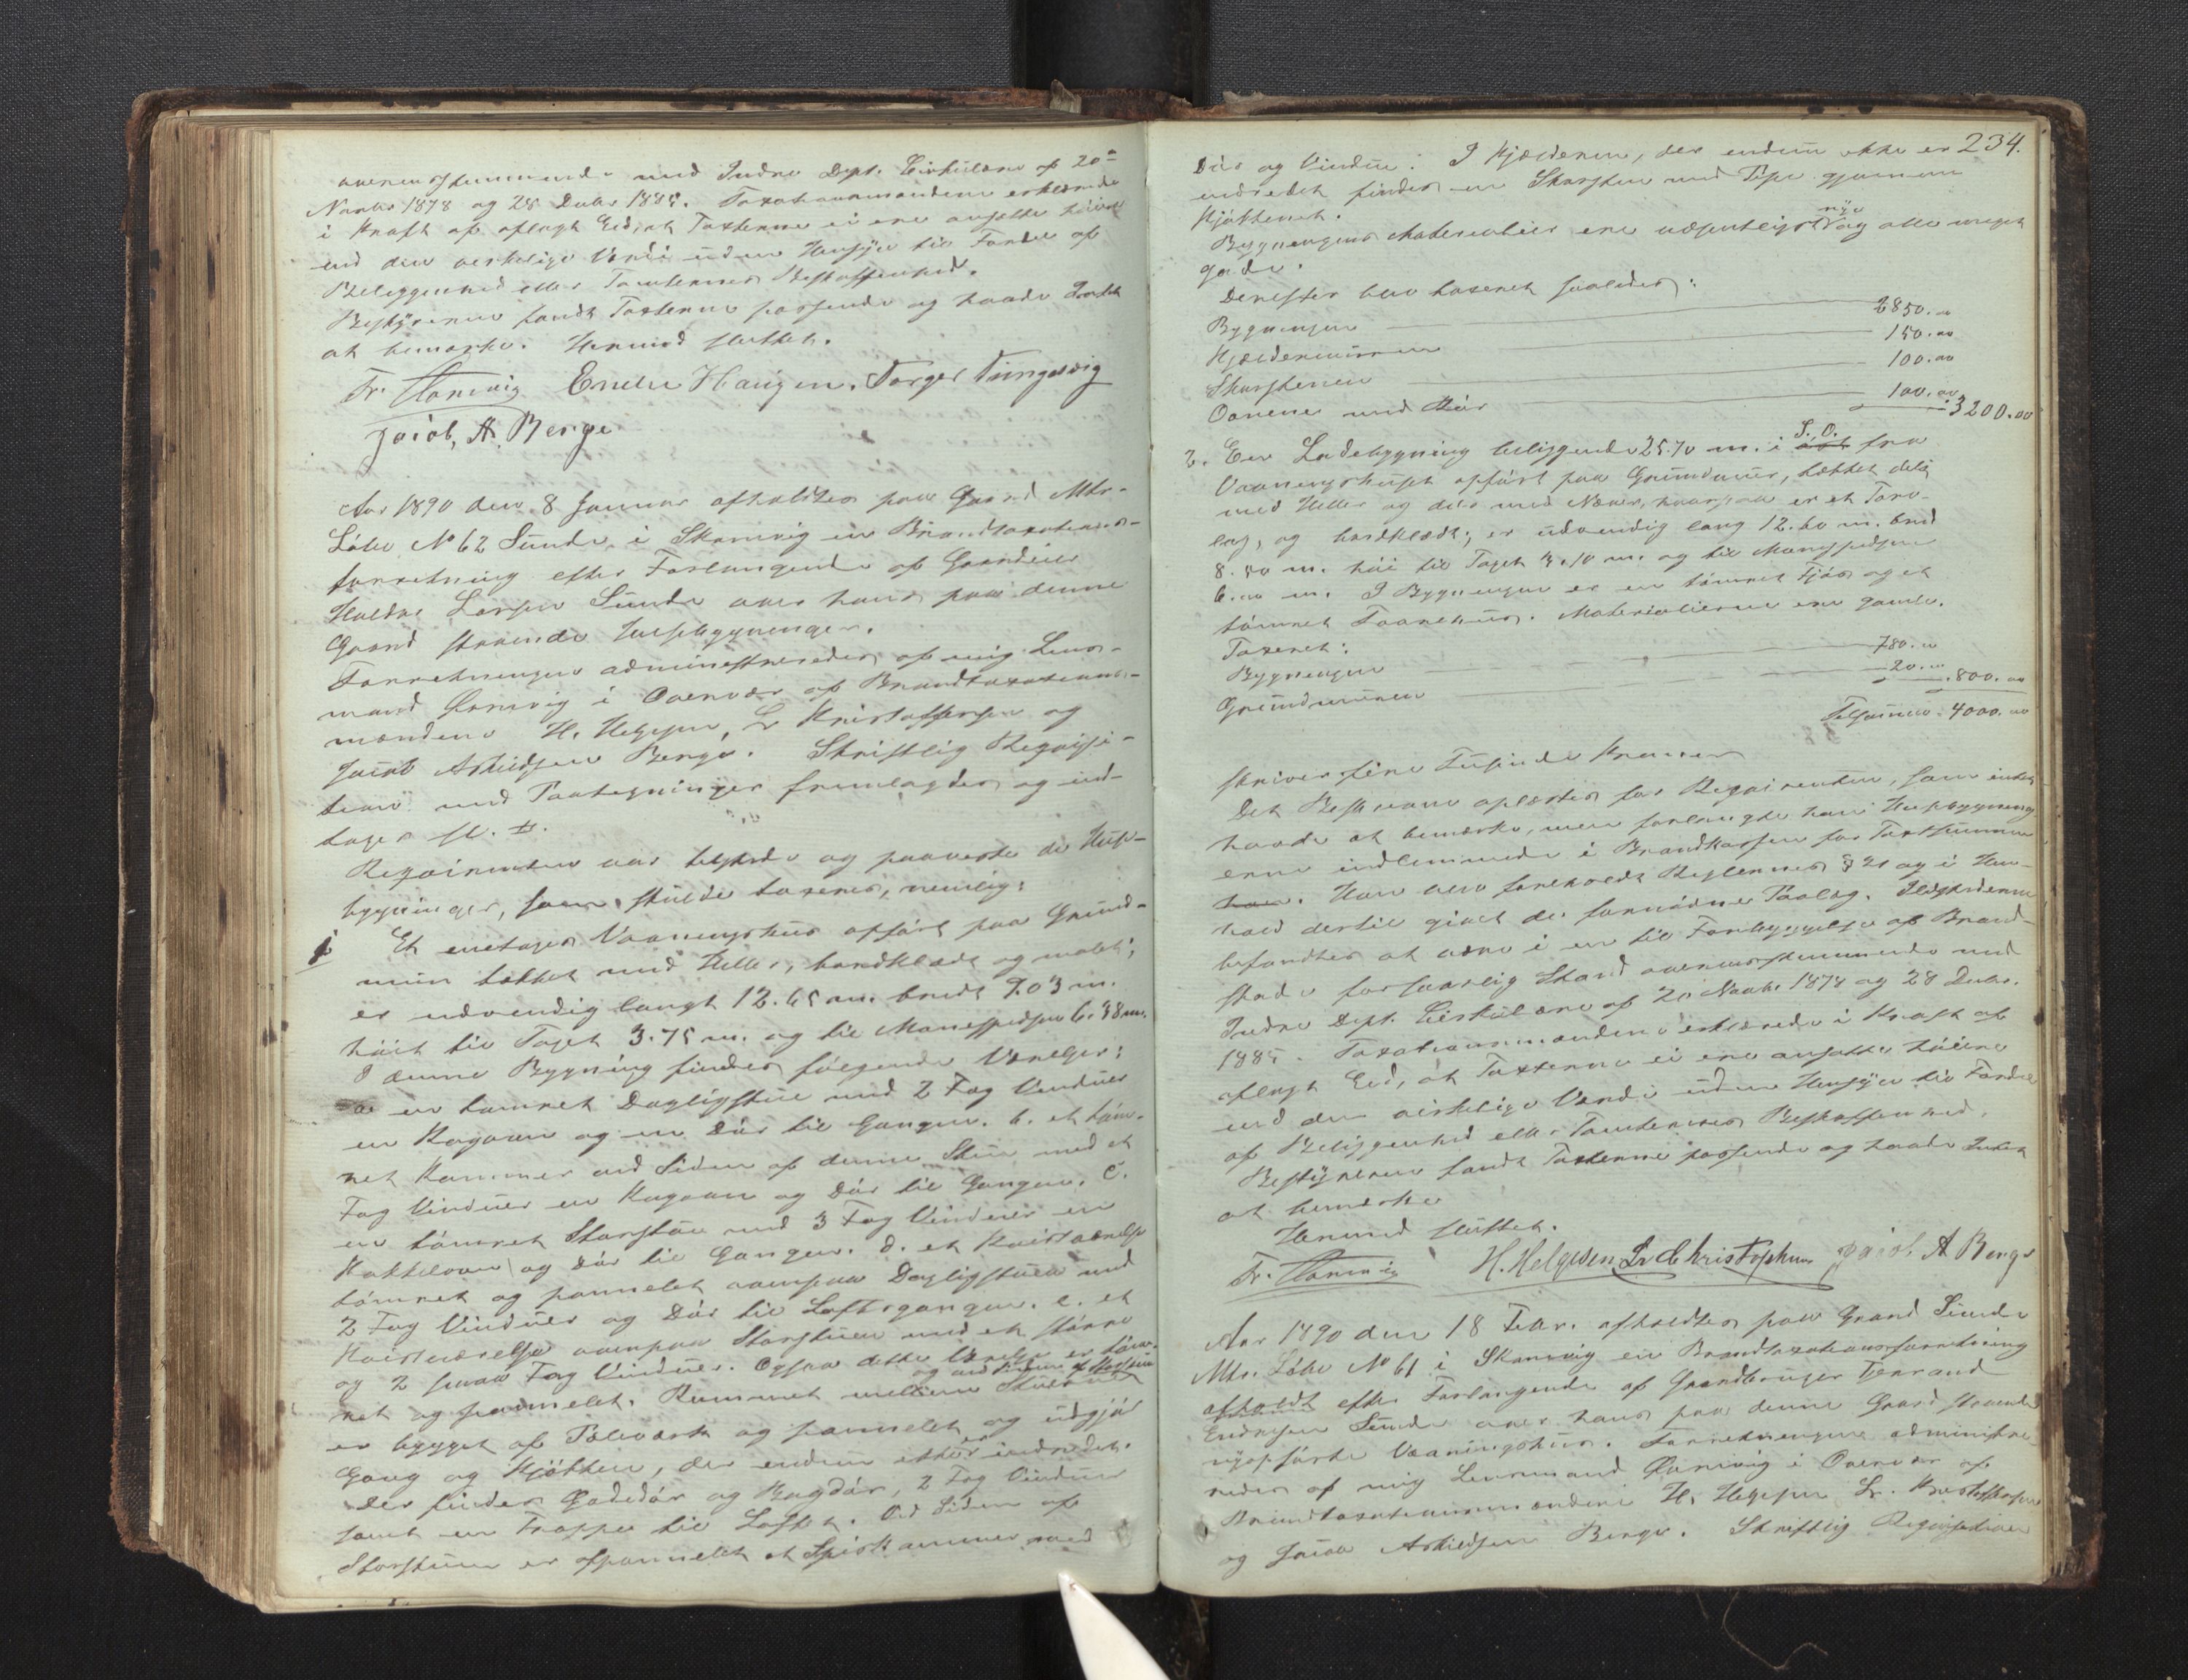 overensstemmende med Indre Dept. Cirkulære af 20de
Novbr 1878 og 28 Decbr 1885. Taxationsmændene erklærede
i Kraft af aflagt Eed, at Taxterne ei ere ansatte høiere
end den verkelige Værdi uden Hensyn til Fordel af
Beliggenhed eller Tomternes Beskaffenhed.
Bestyreren fandt Taxterne passende og havde Intet
at bemærke. Hermed sluttet.
Fr. Endre Haugen. Torger Tungesvig
Jacob, A. Berge
Aar 1890 den 8 Januar afholdtes paa Gaard Mtr-
Løbe No 62 Sunde i Skonevig en Brandtaxations-
forretning efter Forlangende af Gaardeier
Haldor Larsen Sunde over hans paa denne
Gaard staaende Husebygninger.
Forretningen administreredes af mig Lens-
mand i Overvær af Brandtaxations-
mændene H. Helgesen, L. Kristoffersen og
Jacob Askildsen Berge. Skriftlig Reqvisi-
tion med Paategninger fremlagdes og ind-
tages sl.
Reqvirenten var tilstede og paaviste de Huse-
bygninger, som skulde taxeres, nemlig:
1 Et enetages Vaaningshus opført paa Grund-
mur tækket med Heller, bordklædt og malet;
er udvendig langt 12.65 m. bredt 7.03 m.
høit til Taget 3.75 m. og til Mønespidsen 6.38 m.
I denne Bygning findes følgende Værelser:
a. en tømret Dagligstue med 2 Fag Vinduer
en Kogovn og en Dør til Gangen. b. et tøm-
ret Kammer ved Siden af denne Stue med et
Fag Vinduer en Kogovn og Dør til Gangen. C.
en tømret Storstue med 3 Fag Vinduer en
Kakkelovn og Dør til Gangen. d. et Kvistværelse
tømret og pannelet ovenpaa Dagligstuen med
2 Fag Vinduer og Dør til Loftsgangen. e. et
Kvistværelse ovenpaa Storstuen med et større
og 2 smaa Fag Vinduer. Ogsaa dette Værelse er tøm-
ret og pannelet. Rummet mellem Stuerne og ved Siden af
er bygget af Bolværk og pannelet og udgjør
Gang og Kjøkken, der endnu ikke er indredet.
Der findes Gadedør og Bagdør, 2 Fag Vinduer
samt en Trappe til Loftet. Ved Siden af
Storstuen er afpannelet et Spiskammer med
234.
Dør og Vindue. I Kjælderen, der endnu ikke er
indredet findes en Skorsten med Pipe gjennem
Kjøkkenet.
Bygningens Materialier ere væsentligst nye og alle meget
gode.
Derefter blev taxeret saaledes:
Bygningen 2850.00
Kjældermuren 150.00
Skorstenen 100.00
Ovnene med Rør 100.00 3200.00
2. En Ladebygning beliggende 25.70 m. i S.O. fra
Vaaningshuset opført paa Grundmur, tækket dels
med Heller og dels med Næver, hvorpaa er et Torv-
lag, og bordklædt; er udvendig lang 12.60 m. bred
8.50 m. høi til Taget 3.10 m. og til Mønespidsen
6.00 m. I Bygningen er en tømret Fjøs og et
tømret Faarehus. Materialierne ere gamle.
Taxeret:
Bygningen 780.00
Grundmuren 20.00 800.00
Tilsammen 4000.00
skriver fire Tusinde Kroner
Det Beskrevne oplæstes for Reqvirenten, som intet
havde at bemærke, men forlangte han Husebygning
erne indlemmede i Brandkassen for Taxtsummen
. Han blev foreholdt Reglernes § 21 og i Hen-
hold dertil givet de fornødne Paalæg. Ildstederne
befandtes at være i en til Forebyggelse af Brand-
skade forsvarlig Stand overensstemmende med
Indre Dept. Cirkulære af 20 Novbr. 1878 og 28 Decbr.
1885. Taxationsmændene erklærede i Kraft af
aflagt Eed, at Taxterne ei ere ansatte høiere
end den virkelige Værdi uden Hensyn til Fordel
af Beliggenhed eller Tomternes Beskaffenhed.
Bestyreren fandt Taxterne passende og havde Intet
at bemærke
Hermed sluttet.
Fr. H. Helgesen L Christophersen Jacob A Berge
Aar 1890 den 18 Febr. afholdtes paa Gaard Sunde
Mtr. Løbe No 61 i Skonevig en Brandtaxationsforretning
afholdt efter Forlangende af Gaardbruger Tjerand
Endresen Sunde over hans paa denne Gaard staaende
nyopførte Vaaningshus. Forretningen administre-
redes af mig Lensmand i Overvær af
Brandtaxationsmændene H. Helgesen L. Kristoffersen
og Jacob Askildsen Berge. Skriftlig Reqvisition